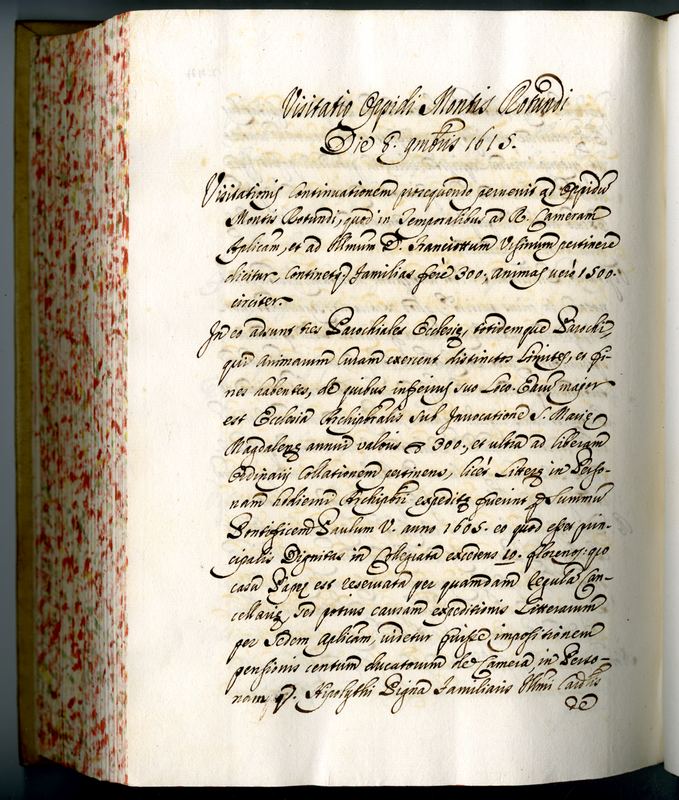 Visitatio Oppidi Montis Rotundi
Die 8. 9mbris 1615.
Visitationis continuationem prosequendo pervenit ad Oppidum
Montis Rotundi, quod in Temporalibus ad R. Cameram
Aplicam, et ad Illmum D. Franciottum Ursinum pertinere
dicitur, continetq3 familias ferè 300. animas verò 1500.
circiter.
In eo adsunt tres Parochiales Ecclesię, totidemque Parochi,
qui animarum Curam exercent distinctos Limites, et fi-
nes habentes, de quibus inferius suo Loco. Earum major
est Ecclesia Archipbralis sub Invocatione S. Marię
Magdalenę annui valoris 300, et ultra ad liberam
Ordinarij Collationem pertinens, licet Litterę in Perso-
nam hodierni Archipbri expeditę fuerint per Summum
Pontificem Paulum V. anno 1605. eo quod esset prin-
cipalis Dignitas in Collegiata excedens 10. florenos: quo
casu Papę est reservata per quamdam regulam Can-
cellarię, sed potius causam expeditionis Litterarum
per Sedem Aplicam, videtur fuisse impositionem
pensionis centum ducatorum de Camera in Perso-
nam q. Hipolythi Pigna Familiaris Illmi Cardlis